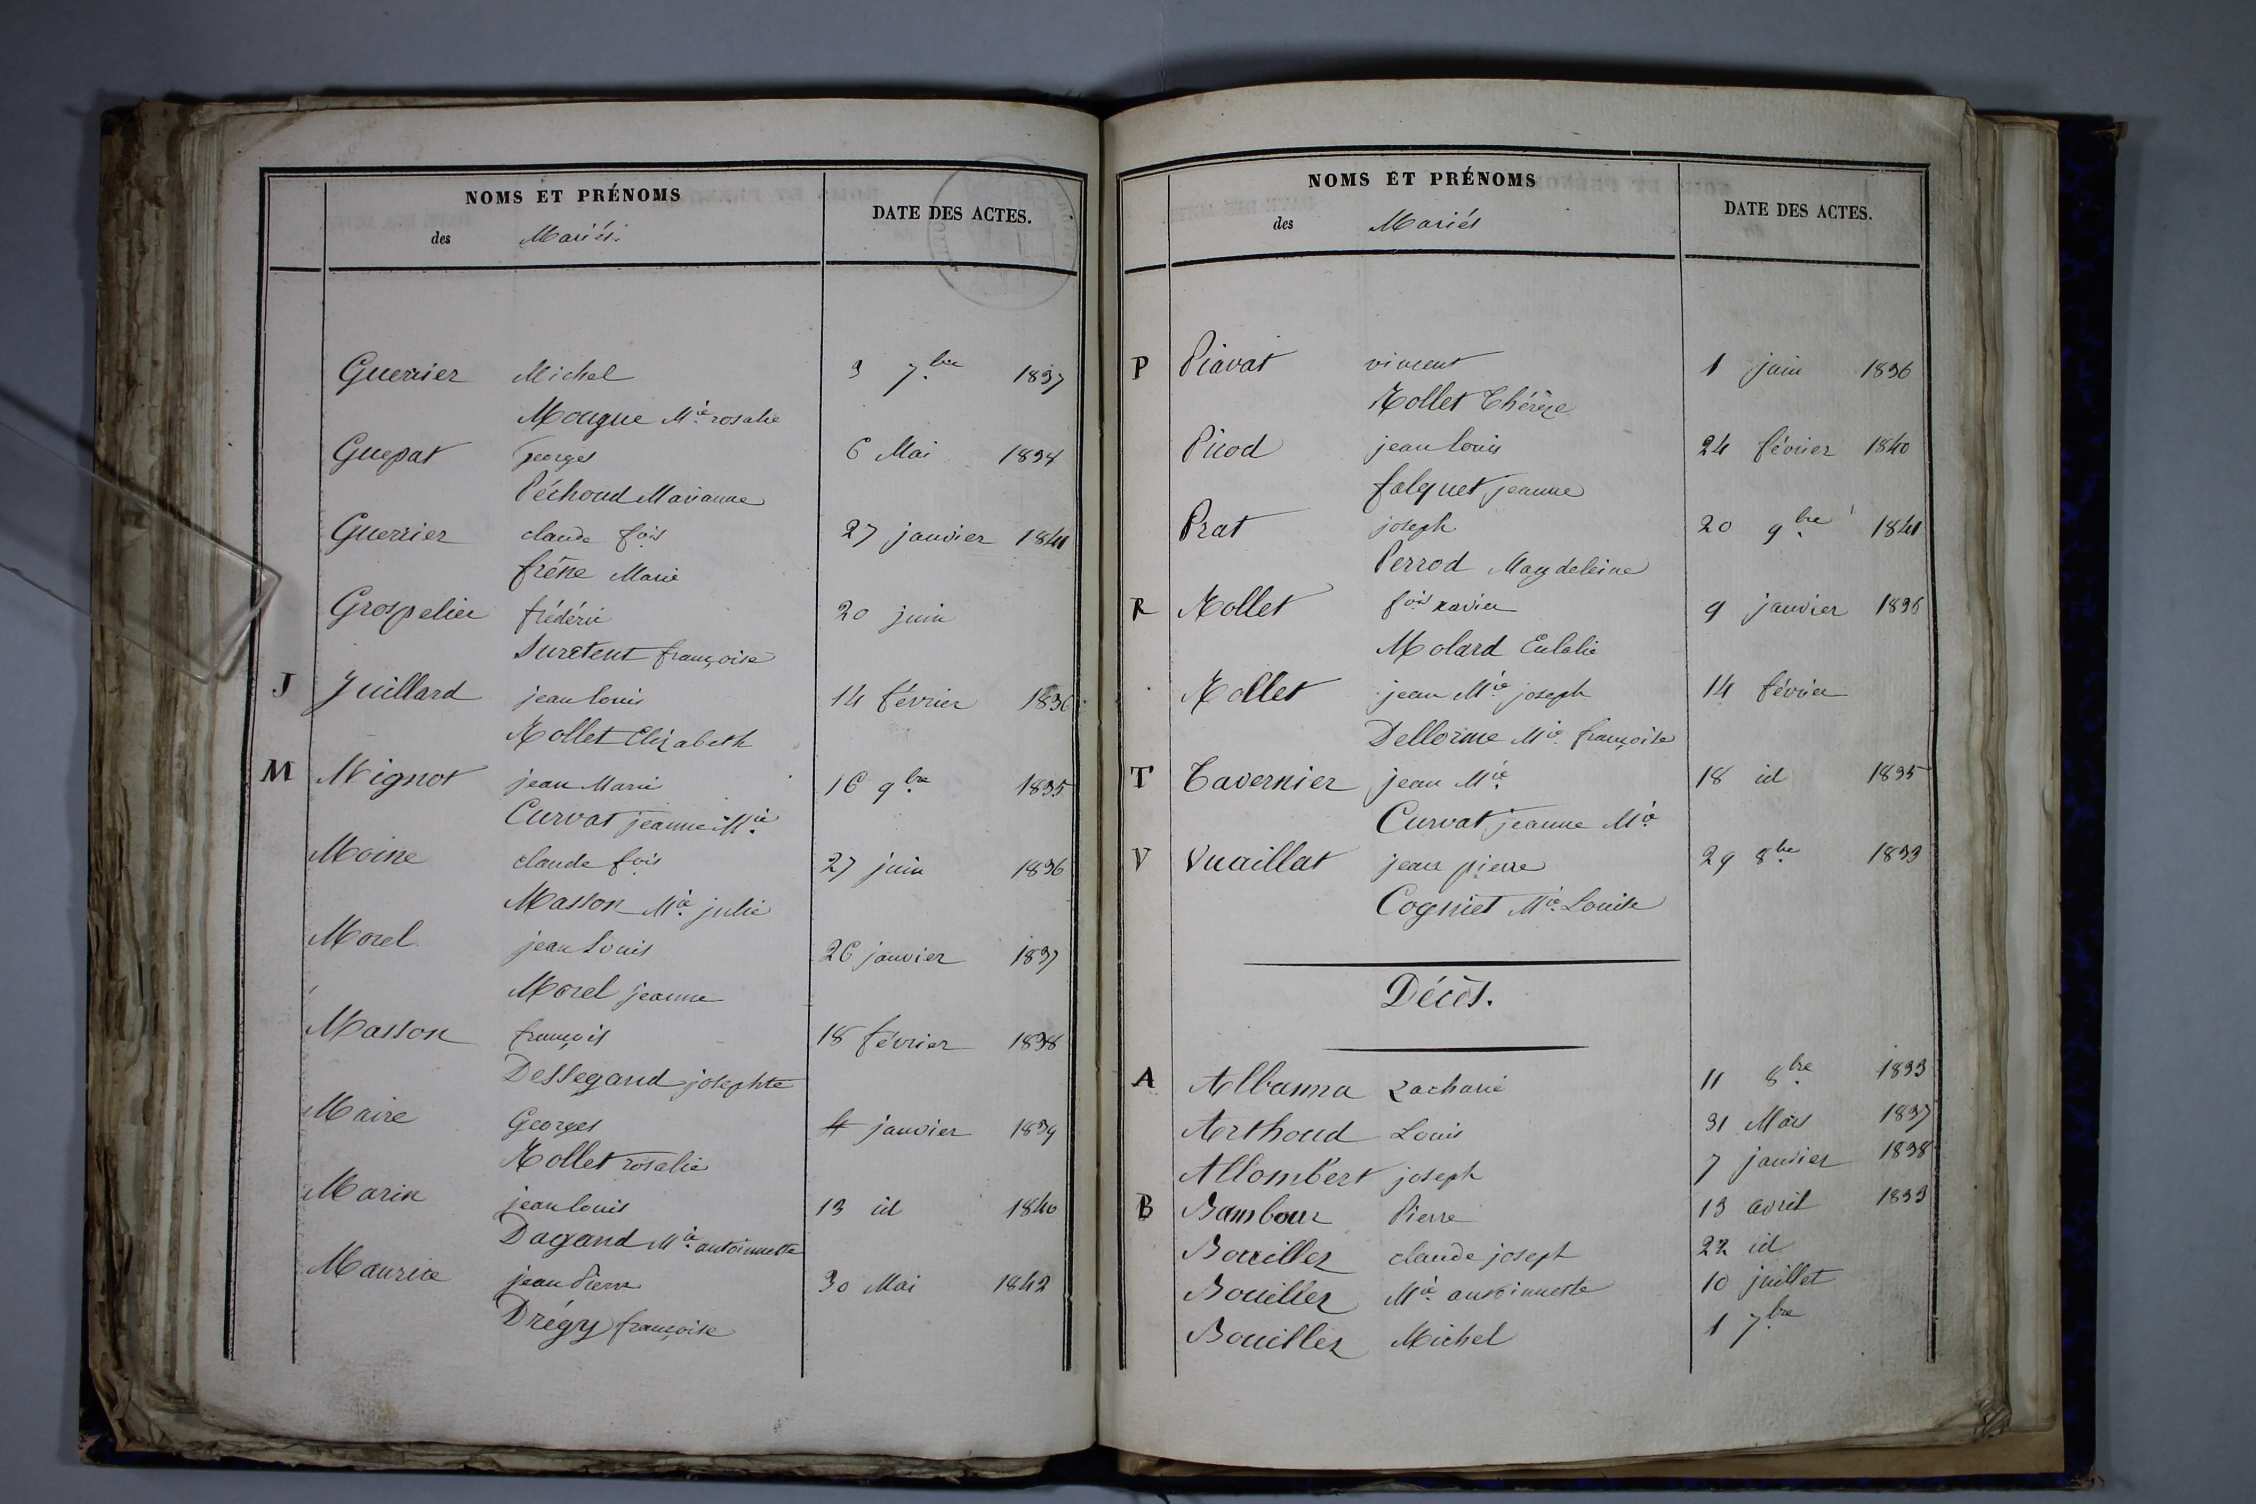 NOMS ET PRÉNOMS
des Mariés.
DATE DES ACTES.
Guerrier Michel 3 7bre 1837
Mougue Mie rosalie
Guepat Georges 6 Mai 1834
Péchoud Marianne
Guerrier claude fois 27 janvier 1841
frêne Marie
Grospelier frédéric 20 juin
Suretent françoise
J Juillard jean louis 14 février 1836
Rollet Elizabeth
M Mignot jean Marie 16 9bre 1835
Curvat jeanne Mie
Moine claude fois 27 juin 1836
Masson Mie julie
Morel jean Louis 26 janvier 1837
Morel jeanne
Masson françois 18 février 1838
Dessegand josephte
Maire Georges 4 janvier 1839
Rollet rosalie
Marin jean louis 13 id 1840
Dagand Mie antoinette
Maurice jean Pierre 30 Mai 1842
Drégy françoise
NOMS ET PRÉNOMS
des Mariés
DATE DES ACTES.
P Piavat vincent 1 juin 1836
Rollet Thérèze
Picod jean louis 24 février 1840
falquet jeanne
Prat joseph 20 9bre 1841
Perrod Magdeleine
R Rollet fois xavier 9 janvier 1836
Molard Eulalie
Rollet jean Mie joseph 14 février
Dellorme Mie françoise
T Tavernier jean Mie 18 id 1835
Curvat jeanne Mie
V Vuaillat jean pierre 29 8bre 1833
Cogniet Mie Louise
Décès.
A Albanna Zacharie 11 8bre 1833
Arthoud Louis 31 Mars 1837
Allombert joseph 7 janvier 1838
B Bambour Pierre 13 avril 1833
Bouillez claude joseph 22 id
Bouillez Mie antoinette 10 juillet
Bouillez Michel 1 7bre